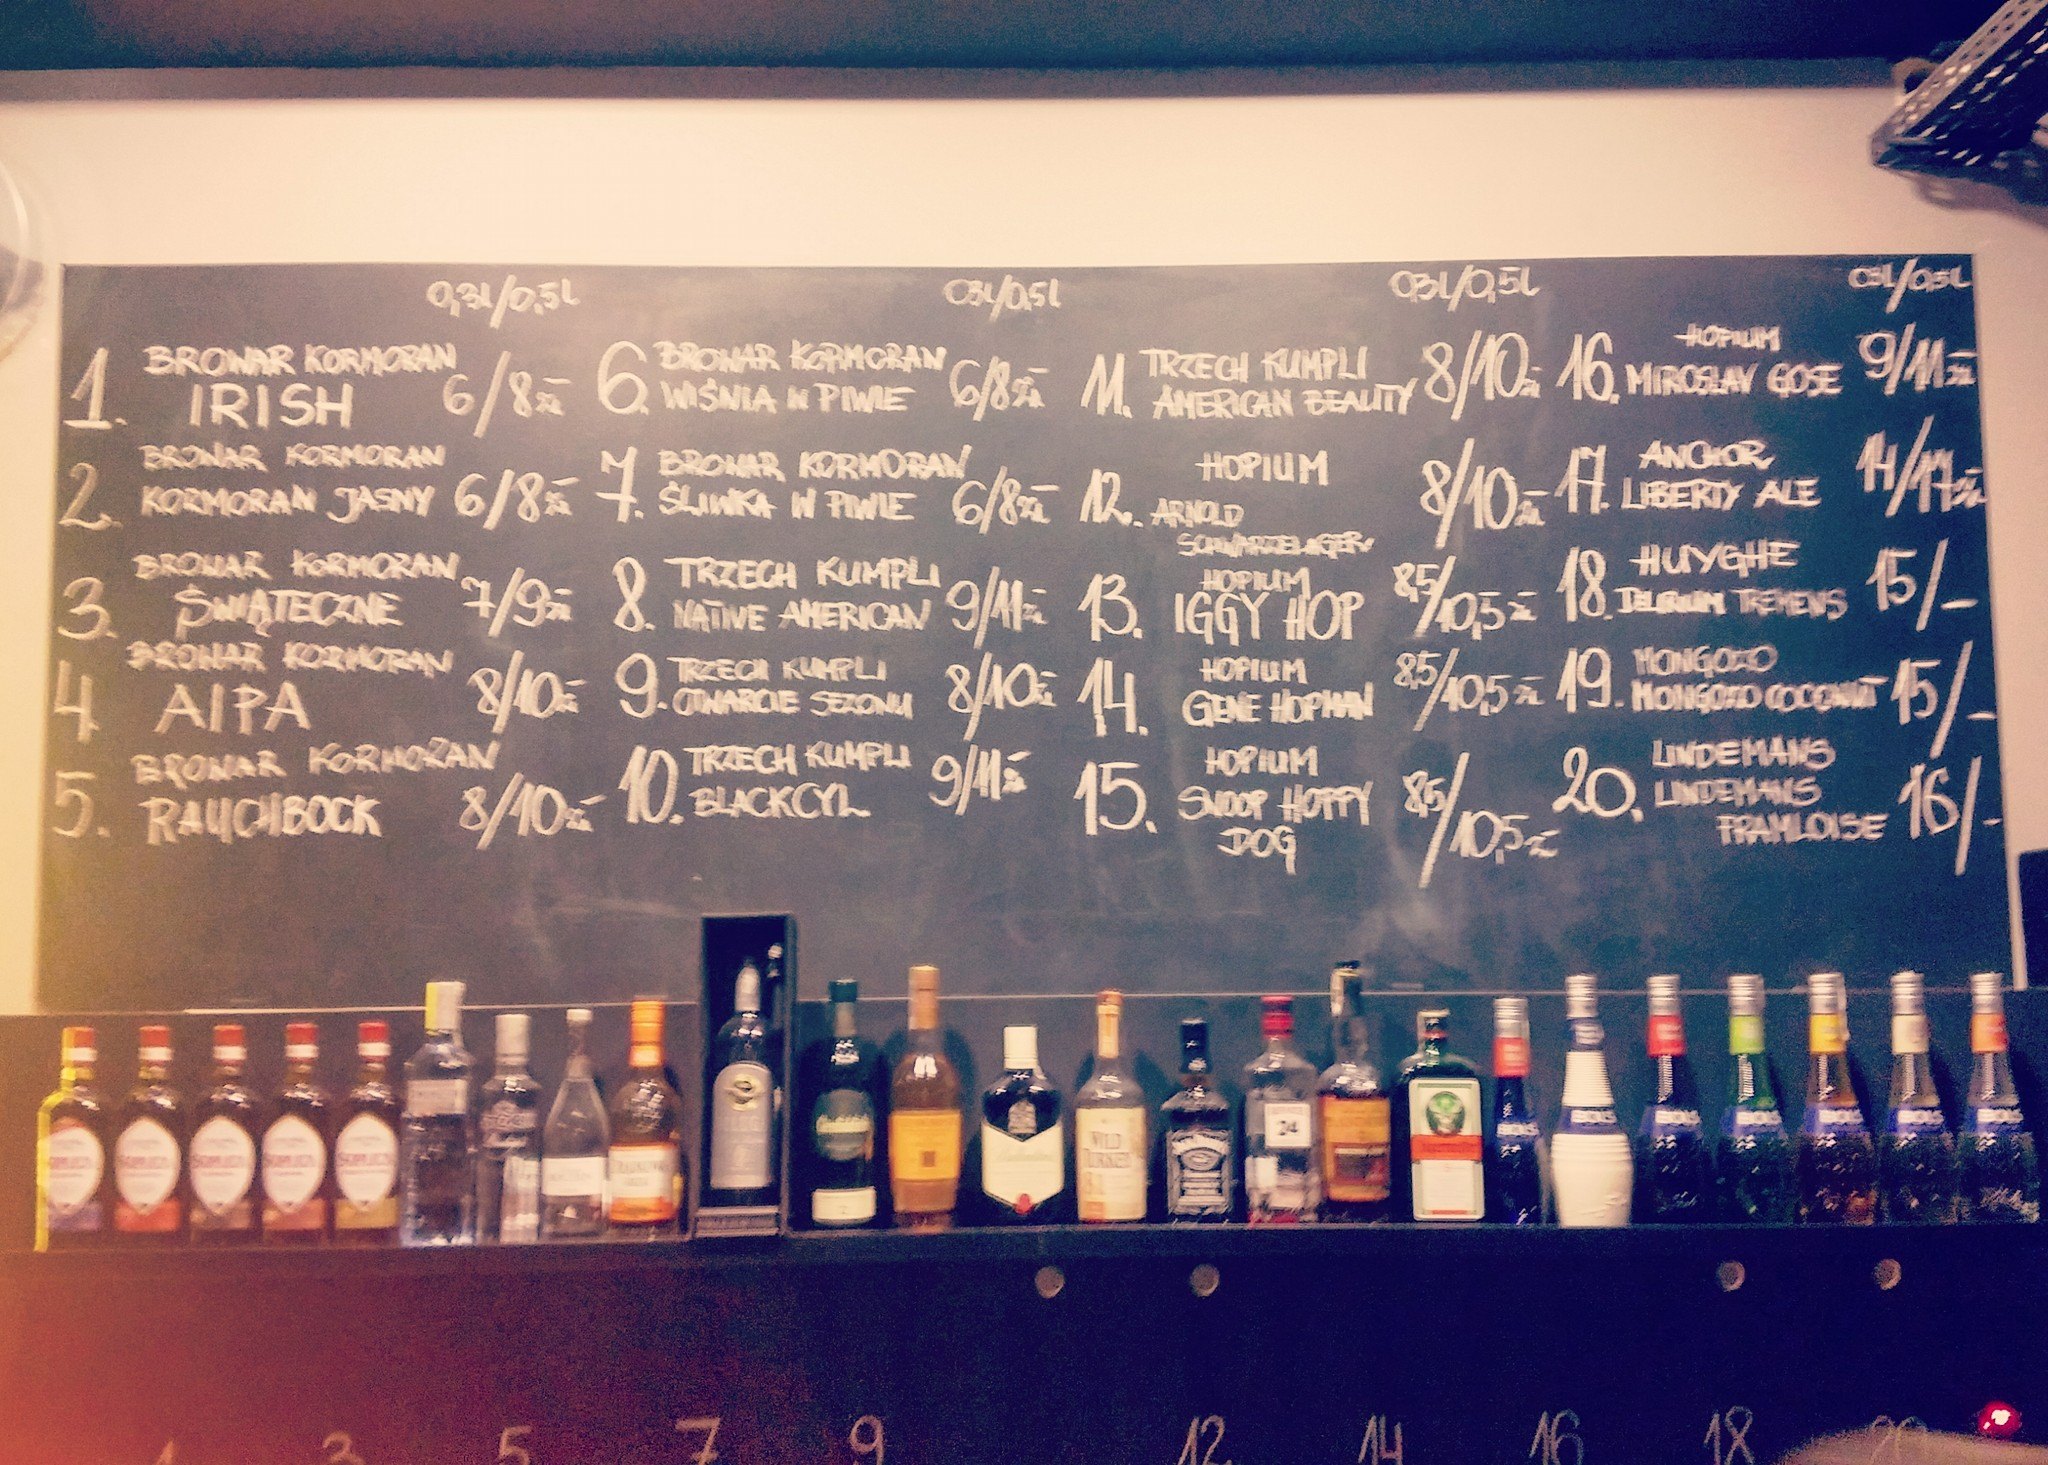 0,3l/0,5l
1. BROWAR KORMORAN
IRISH 6/8 zł
2. BROWAR KORMORAN
KORMORAN JASNY 6/8 zł
3. BROWAR KORMORAN
ŚWIĄTECZNE 7/9 zł
4. BROWAR KORMORAN
AIPA 8/10 zł
5. BROWAR KORMORAN
RAUCHBOCK 8/10 zł
03l/0,5l
6. BROWAR KORMORAN
WIŚNIA W PIWIE 6/8 zł
7. BROWAR KORMORAN
ŚLIWKA W PIWIE 6/8 zł
8. TRZECH KUMPLI
NATIVE AMERICAN 9/11 zł
9. TRZECH KUMPLI
OTWARCIE SEZONU 8/10 zł
10. TRZECH KUMPLI
BLACKCYL 9/11 zł
0,3l/0,5l
11. TRZECH KUMPLI
AMERICAN BEAUTY 8/10 zł
12. HOPIUM 8/10 zł
ARNOLD
SCHWARZELAGER
13. HOPIUM
IGGY HOP 8,5/10,5 zł
14. HOPIUM
GENE HOPMAN 8,5/10,5 zł
15. HOPIUM
SNOOP HOPPY
DOG 8,5/10,5 zł
03l/0,5l
16. HOPIUM
MIROSLAV GOSE 9/11 zł
17. ANCHOR
LIBERTY ALE 14/17 zł
18. HUYGHE
DELIRIUM TREMENS 15/-
19. MONGOZO
MONGOZO COCONUT 15/-
20. LINDEMANS
LINDEMANS
FRAMLOISE 16/-
SOPLICA
SOPLICA
SOPLICA
SOPLICA
SOPLICA
WILD
TURKEY
81
JACK DANIEL'S
24
BOLS
BOLS
BOLS
BOLS
BOLS
BOLS
BOLS
1 3 5 7 9 12 14 16 18 20